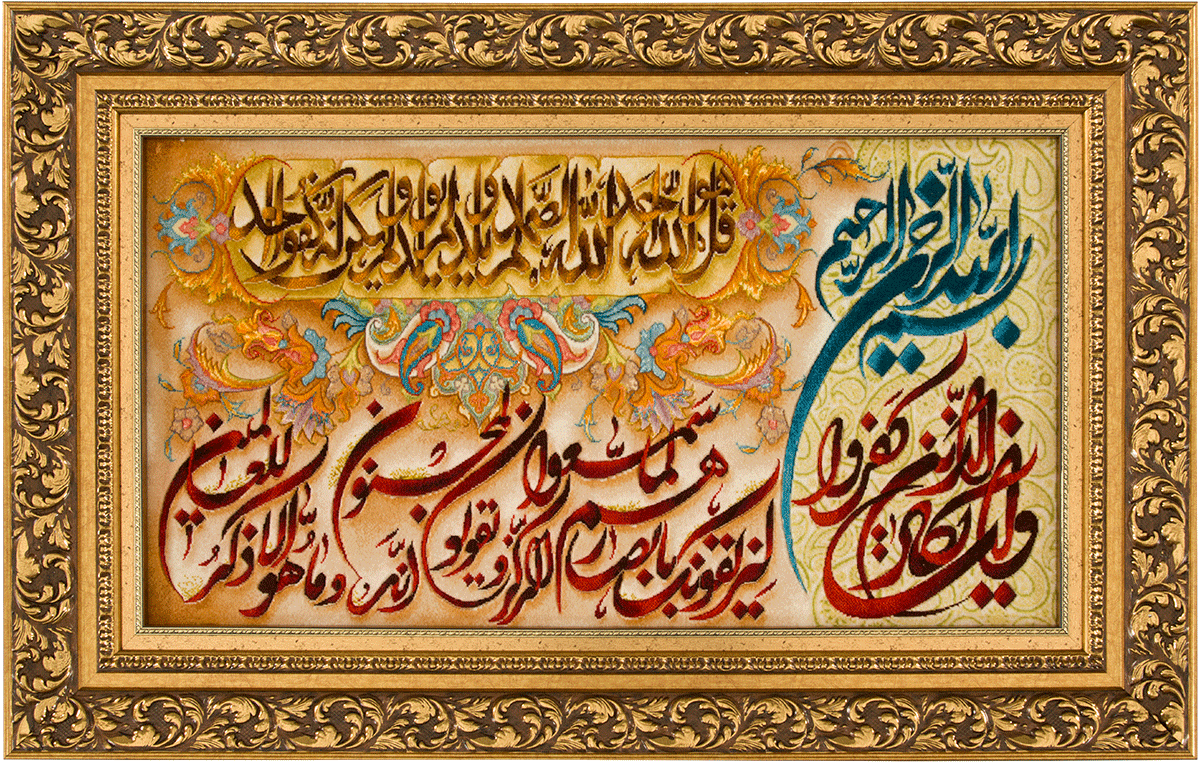 بسم الله الرحمن الرحيم
قل هو الله احد الله الصمد لم يلد ولم يولد ولم يكن له كفوا احد
وان يكاد الذين كفروا
ليزلقونك بابصارهم لما سمعوا الذكر ويقولون انه لمجنون وما هو الا ذكر للعالمين